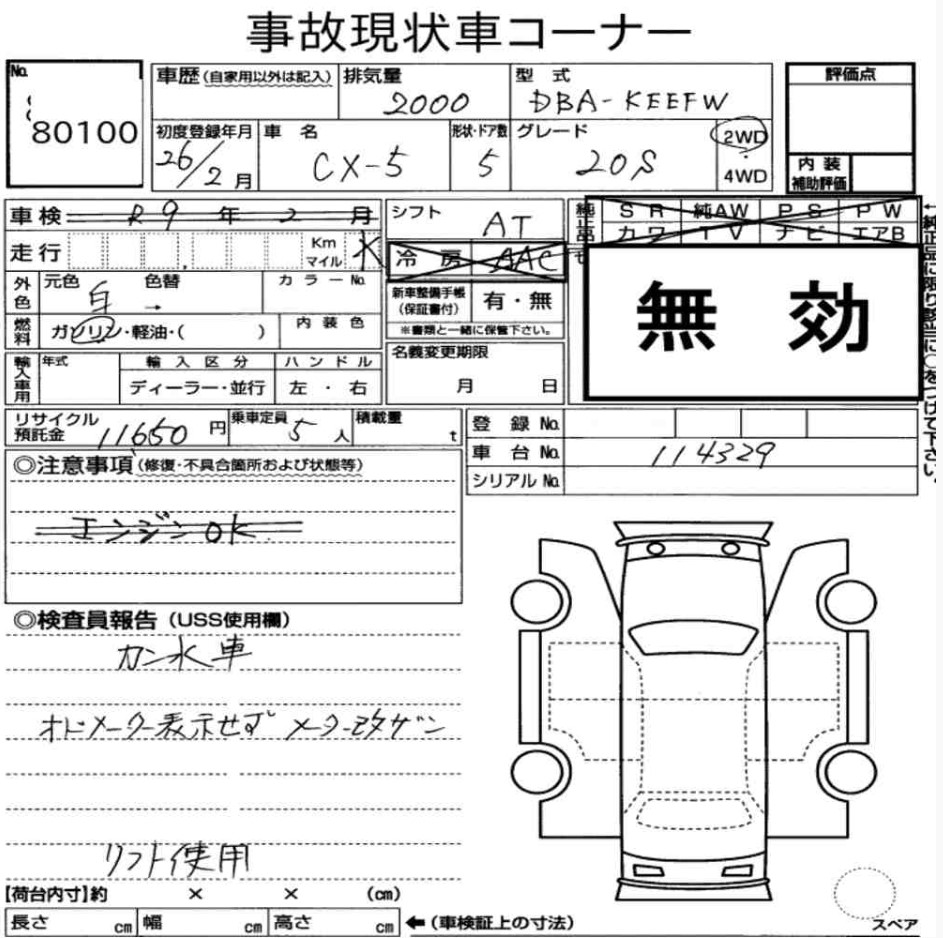 事故現状車コーナー
No. 80100
車歴 (自家用以外は記入) 排気量 2000 型式 DBA-KEEFW 評価点
初度登録年月 26/2月 車名 CX-5 形状・ドア数 5 グレード 20S 2WD 4WD
内装補助評価
車検 R9年2月 シフト AT 純正品 SR 純AW PS PW
走行 Km マイル X 冷房 AAC カワ TV ナビ エアB
無効
←純正品に限り該当に○をつけて下さい。
外色 元色 白 色替 → カラーNo. 新車整備手帳(保証書付) 有・無
燃料 ガソリン・軽油・( ) 内装色 ※書類と一緒に保管下さい。
輸入車用 年式 輸入区分 ハンドル 名義変更期限
ディーラー・並行 左・右 月 日
リサイクル預託金 11650円 乗車定員 5人 積載量 t 登録No.
車台No. 114329
シリアルNo.
◎注意事項 (修復・不具合箇所および状態等)
エンジンOK.
◎検査員報告 (USS使用欄)
カン水車
オドメーター表示せず メーター改ザン
リフト使用
【荷台内寸】約 × × (cm)
長さ cm 幅 cm 高さ cm ←(車検証上の寸法)
スペア